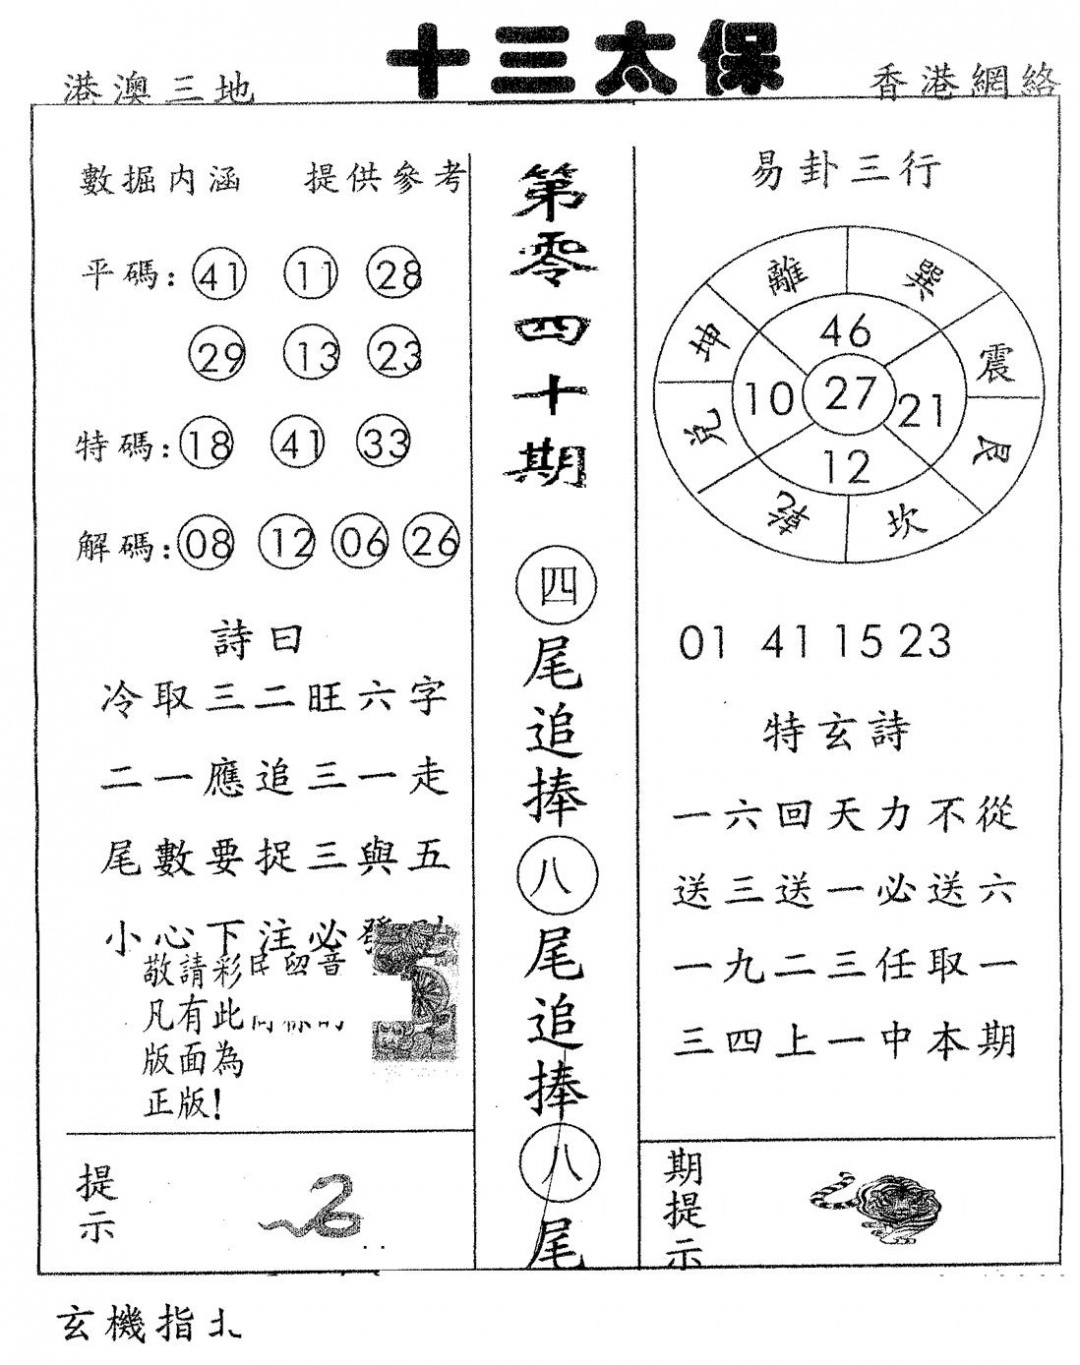 十三太保
港澳三地
香港網絡
數掘内涵 提供參考
平碼: 41 11 28
29 13 23
特碼: 18 41 33
解碼: 08 12 06 26
詩曰
冷取三二旺六字
二一應追三一走
尾數要捉三與五
小心下注必發
敬請彩民留音
凡有此
版面為
正版!
提示
第零四十期
四尾追捧八尾追捧八尾
易卦三行
離 巽
坤 震
兌 艮
乾 坎
46
10 27 21
12
01 41 15 23
特玄詩
一六回天力不從
送三送一必送六
一九二三任取一
三四上一中本期
期提示
玄機指北